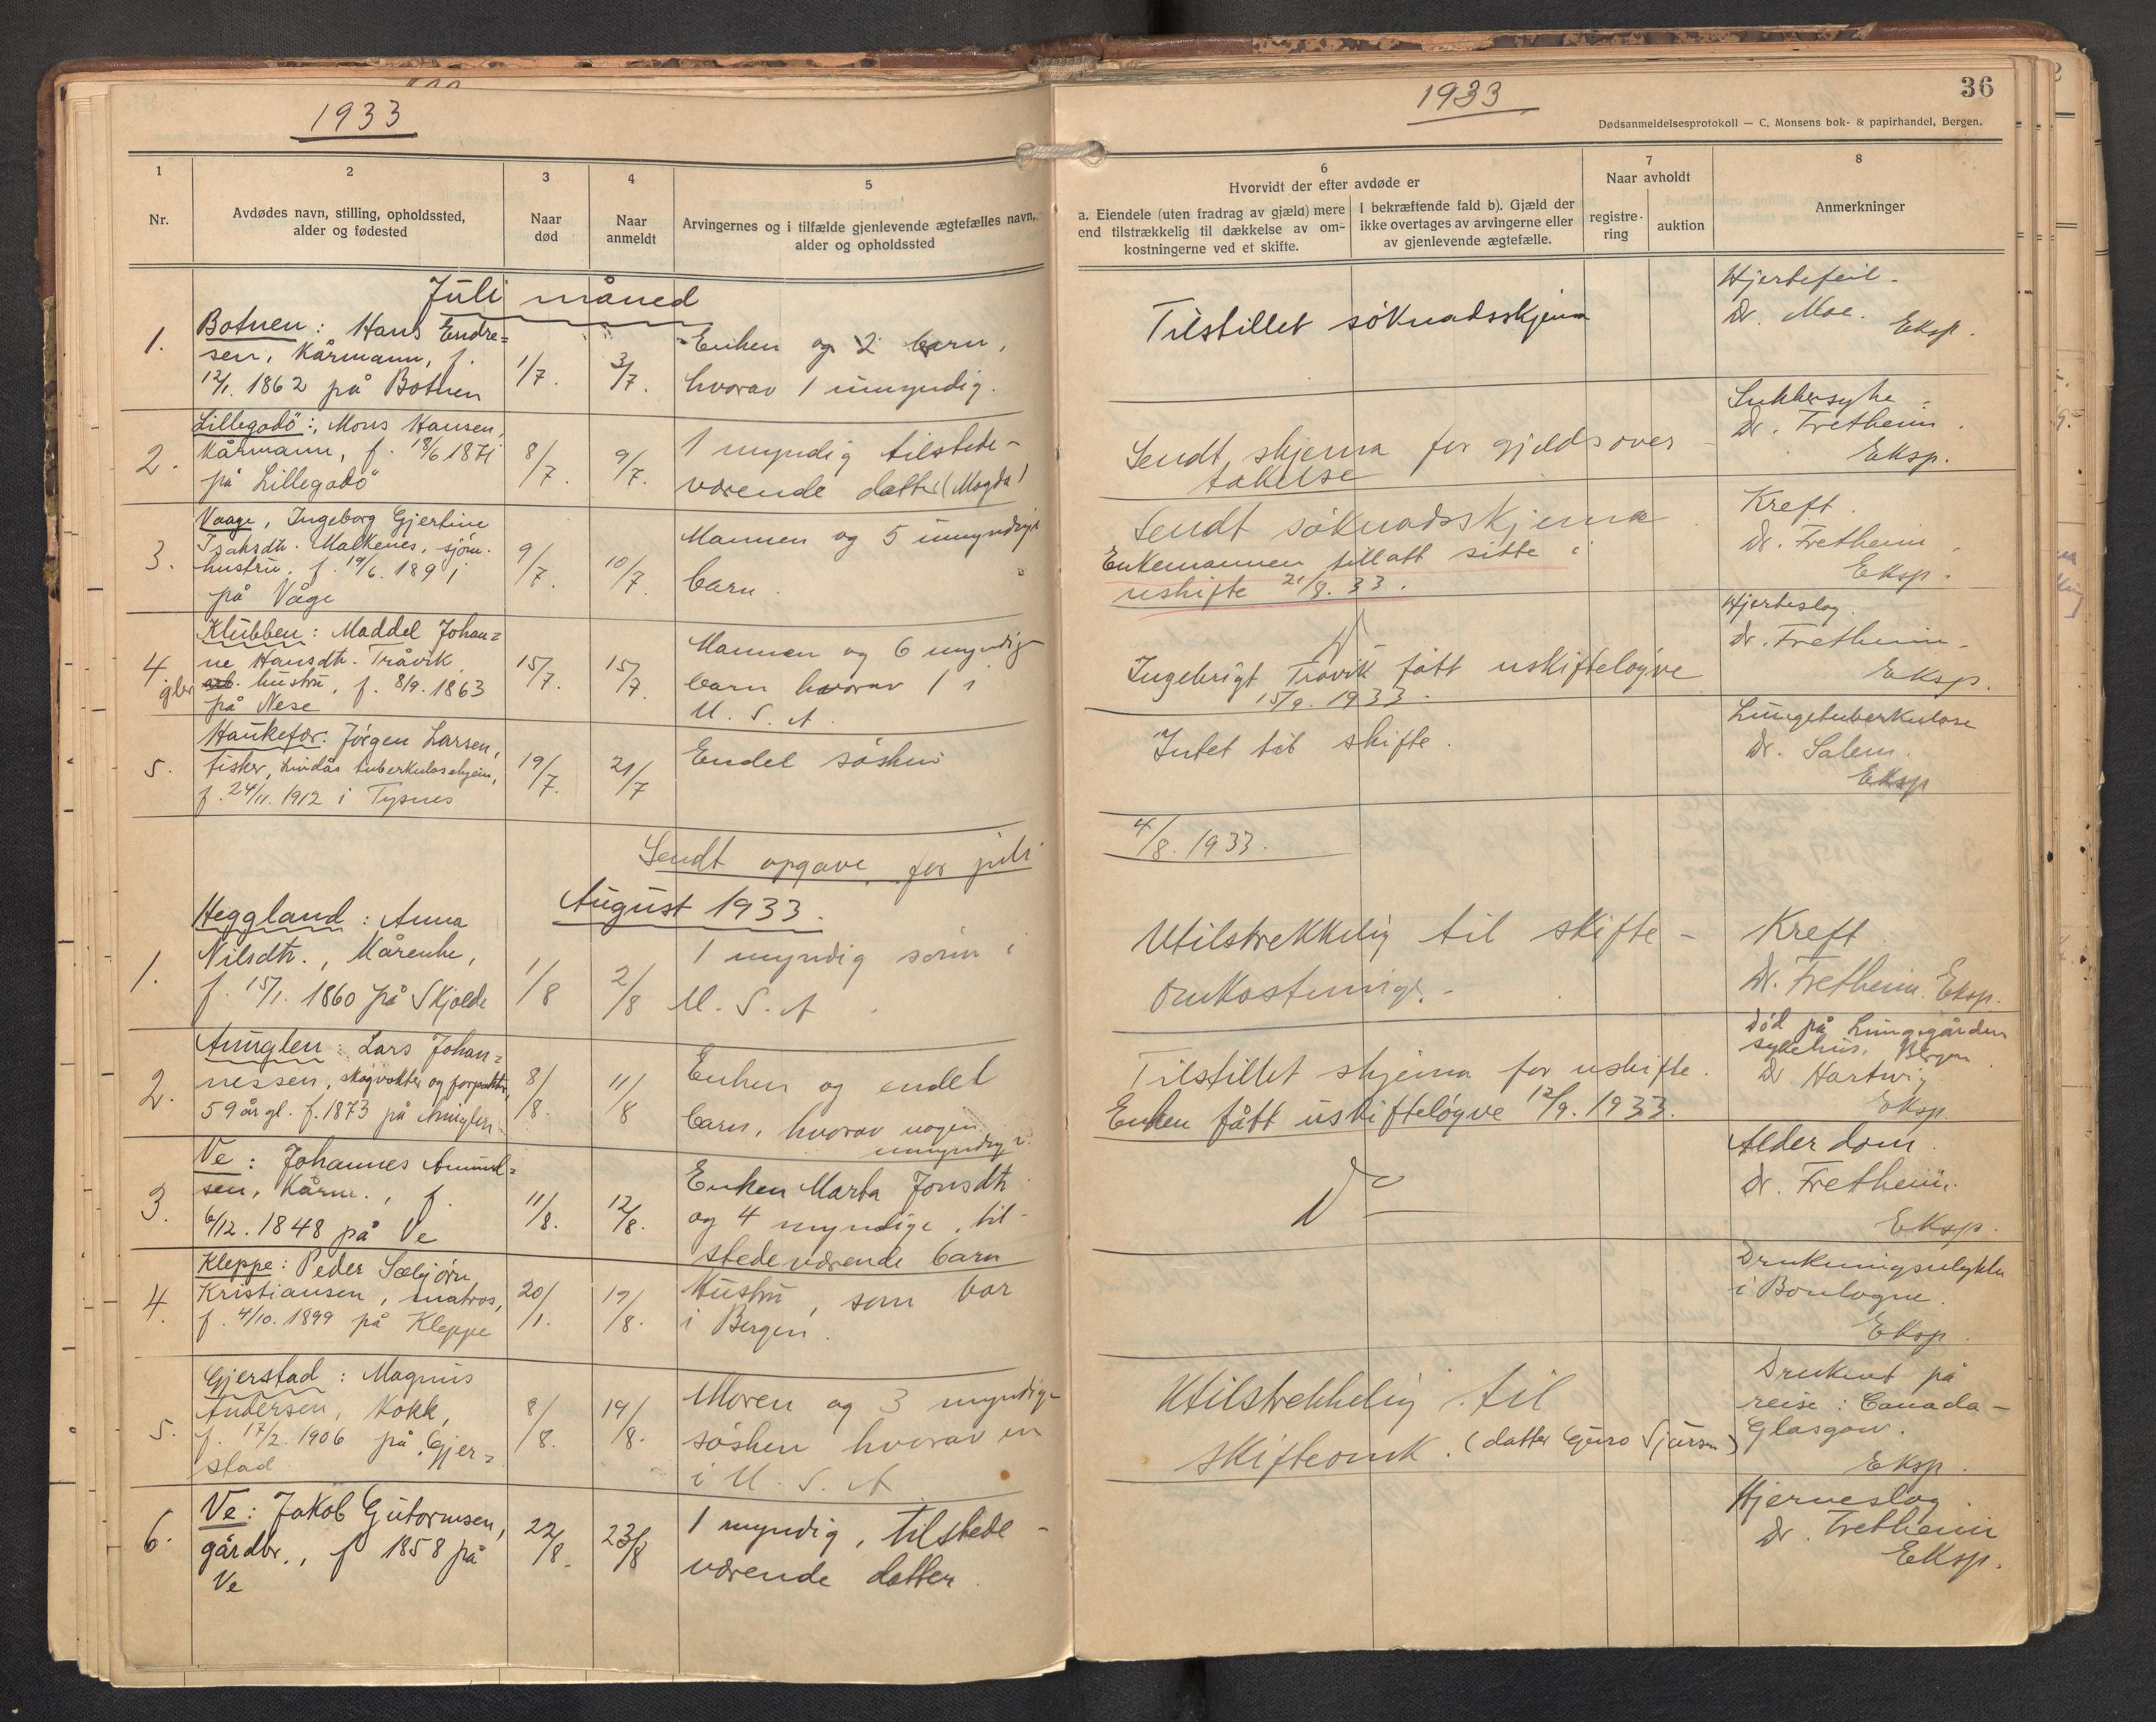 1933
1933
36
Dødsanmeldelsesprotokoll — C. Monsens bok- & papirhandel, Bergen.
1
Nr.
2
Avdødes navn, stilling, opholdssted,
alder og fødested
3
Naar
død
4
Naar
anmeldt
5
Arvingernes og i tilfælde gjenlevende ægtefælles navn,
alder og opholdssted
6
Hvorvidt der efter avdøde er
a. Eiendele (uten fradrag av gjæld) mere
end tilstrækkelig til dækkelse av om-
kostningerne ved et skifte.
I bekræftende fald b). Gjæld der
ikke overtages av arvingerne eller
av gjenlevende ægtefælle.
7
Naar avholdt
registre-
ring
auktion
8
Anmerkninger
Juli måned
1.
Botnen: Hans Endre=
sen, Kårmann, f.
12/1. 1862 på Botnen
1/7.
3/7.
Enken og 2 barn,
hvorav 1 umyndig.
Tilstillet søknadsskjema
Hjertefeil.
Dr. Moe.
Eksp.
2.
Lillegodö: Mons Hansen,
Kårmann, f. 18/6 1871
på Lillegodö
8/7.
9/7.
1 myndig tilstede-
værende datter (Magda)
Sendt skjema for gjeldsover-
takelse
Sukkersyke
Dr. Fretheim.
Eksp.
3.
Vaage, Ingeborg Gjertine
Isaksdtr. Malkenes, sjöm.
hustru, f. 19/6. 1891
på Våge
9/7.
10/7.
Mannen og 5 umyndige
barn
Sendt søknadsskjema
Enkemannen tillatt sitte i
uskifte 21/8. 33.
Kreft.
Dr. Fretheim.
Eksp.
4
Klubben: Maddel Johan=
ne Hansdtr. Tråvik
gbr. arb. hustru, f. 8/9. 1863
på Nese
15/7.
15/7.
Mannen og 6 myndige
barn hvorav 1 i
U. S. A.
Ingebrigt Tråvik fått uskifteløyve
15/9. 1933.
Hjerteslag.
Dr. Fretheim.
Eksp.
5.
Haukefær. Jörgen Larsen,
fisker, Lindås tuberkulosehjem,
f. 24/11. 1912 i Tysnes
19/7.
21/7
Endel søsken
Intet til skifte.
Lungetuberkulose
Dr. Salem.
Eksp
Sendt opgave for juli
4/8. 1933.
August 1933.
1.
Heggland: Anna
Nilsdtr., Kårenke,
f. 15/1. 1860 på Skjolde
1/8
2/8
1 myndig sønn i
U. S. A.
Utilstrekkelig til skifte-
omkostninger.
Kreft
Dr. Fretheim. Eksp.
2.
Anuglen: Lars Johan=
nessen, skogvokter og forpakter,
59 år gl. f. 1873 på Anuglen
8/8.
11/8
Enken og endel
barn, hvorav nogen
umyndige
Tilstillet skjema for uskifte.
Enken fått uskifteløyve 12/9. 1933.
Död på Lungegården
sykehus, Bergen
Dr Hartwig
Eksp.
3.
Ve: Johannes Amund=
sen, Kårm., f.
6/12. 1848 på Ve
11/8.
12/8.
Enken Marta Jonsdtr.
og 4 myndige, til-
stedeværende barn
Alderdom.
Dr. Fretheim.
Eksp.
4.
Kleppe: Peder Sæbjörn
Kristiansen, matros,
f. 4/10. 1899 på Kleppe
20/1.
19/8.
Hustru, som bor
i Bergen.
Drukningsulykke
i Boulogne.
Eksp.
5.
Gjerstad: Magnus
Andersen, Kokk,
f. 17/2. 1906 på Gjer=
stad
8/8.
19/8.
Moren og 3 myndige
søsken hvorav en
i U. S. A
Utilstrekkelig til
skifteomk. (datter Guro Sjursen)
Druknet på
reise: Canada-
Glasgow.
Eksp.
6.
Ve: Jakob Gutormsen,
gårdbr., f 1858 på
Ve
22/8.
23/8
1 myndig, tilstede-
værende datter.
Hjerneslag.
Dr. Fretheim
Eksp.